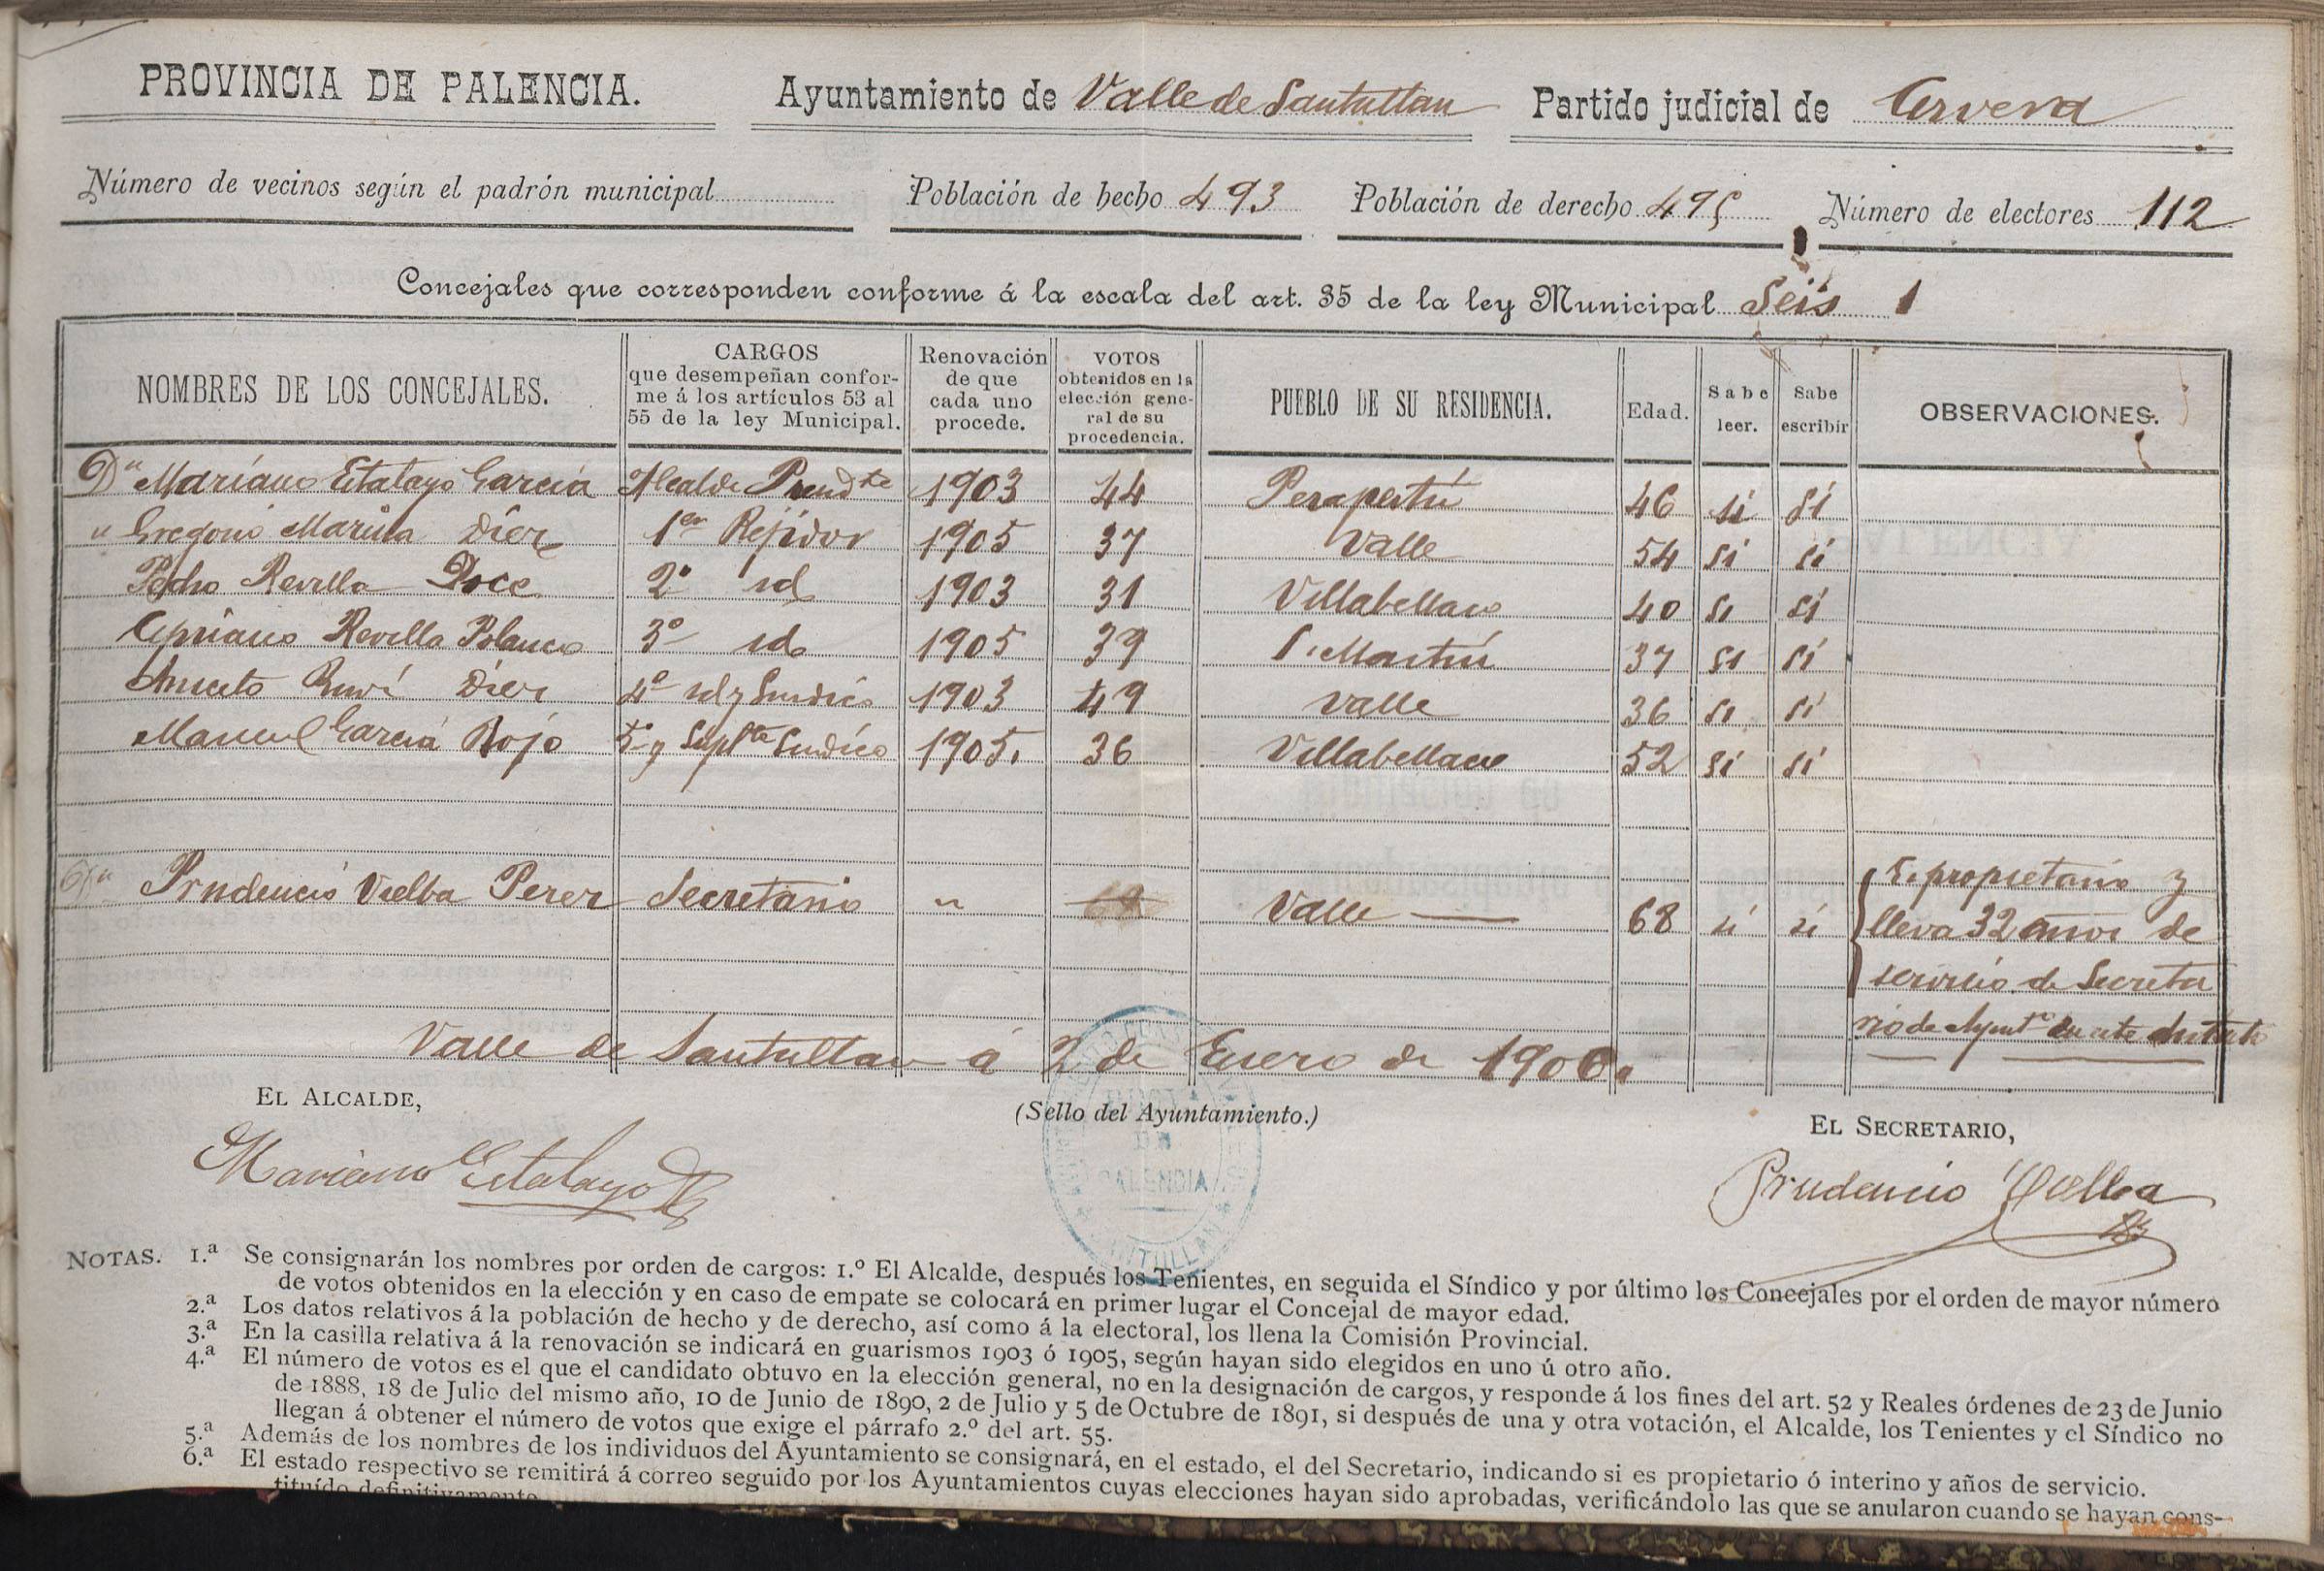 PROVINCIA DE PALENCIA. Ayuntamiento de Valle de Santullan Partido judicial de Cervera
Número de vecinos según el padrón municipal Población de hecho 493 Población de derecho 495 Número de electores 112
Concejales que corresponden conforme á la escala del art. 35 de la ley Municipal Seis
NOMBRES DE LOS CONCEJALES.
CARGOS
que desempeñan confor-
me á los artículos 53 al
55 de la ley Municipal.
Renovación
de que
cada uno
procede.
VOTOS
obtenidos en la
elección gene-
ral de su
procedencia.
PUEBLO DE SU RESIDENCIA.
Edad.
Sabe
leer.
Sabe
escribir
OBSERVACIONES.
Dn Mariano Estalayo García Alcalde Presidte 1903 44 Perapertú 46 si si
" Gregorio Marina Diez 1er Rejidor 1905 37 Valle 54 si si
Pedro Revilla Doce 2º id 1903 31 Villabellaco 40 si si
Cipriano Revilla Polanco 3º id 1905 39 S. Martín 37 si si
Aniceto Diez 4º id y Sindico 1903 49 Valle 36 si si
Manuel García Rojo 5º y Suplte Sindico 1905. 36 Villabellaco 52 si si
Dn Prudencio Vielba Perez Secretario " 68 Valle 68 si si
Es propietario y
lleva 32 años de
servicio de Secreta
rio de Aymtº en este distrito
Valle de Santullan á 2 de Enero de 1906.
EL ALCALDE,
(Sello del Ayuntamiento.)
EL SECRETARIO,
Mariano Estalayo
Prudencio Vielba
PALENCIA
SANTULLAN
NOTAS. 1.ª Se consignarán los nombres por orden de cargos: 1.º El Alcalde, después los Tenientes, en seguida el Síndico y por último los Concejales por el orden de mayor número
de votos obtenidos en la elección y en caso de empate se colocará en primer lugar el Concejal de mayor edad.
2.ª Los datos relativos á la población de hecho y de derecho, así como á la electoral, los llena la Comisión Provincial.
3.ª En la casilla relativa á la renovación se indicará en guarismos 1903 ó 1905, según hayan sido elegidos en uno ú otro año.
4.ª El número de votos es el que el candidato obtuvo en la elección general, no en la designación de cargos, y responde á los fines del art. 52 y Reales órdenes de 23 de Junio
de 1888, 18 de Julio del mismo año, 10 de Junio de 1890, 2 de Julio y 5 de Octubre de 1891, si después de una y otra votación, el Alcalde, los Tenientes y el Síndico no
llegan á obtener el número de votos que exige el párrafo 2.º del art. 55.
5.ª Además de los nombres de los individuos del Ayuntamiento se consignará, en el estado, el del Secretario, indicando si es propietario ó interino y años de servicio.
6.ª El estado respectivo se remitirá á correo seguido por los Ayuntamientos cuyas elecciones hayan sido aprobadas, verificándolo las que se anularon cuando se hayan cons-
tituído definitivamente